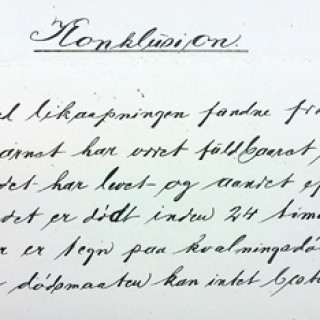 Konklusion.
likaapningen fandne fr
har været fuldbaaret
det har levet og aandet ef
det er dødt inden 24 tim
r er tegn paa kvælningsdø
dødsmaaten kan intet besta